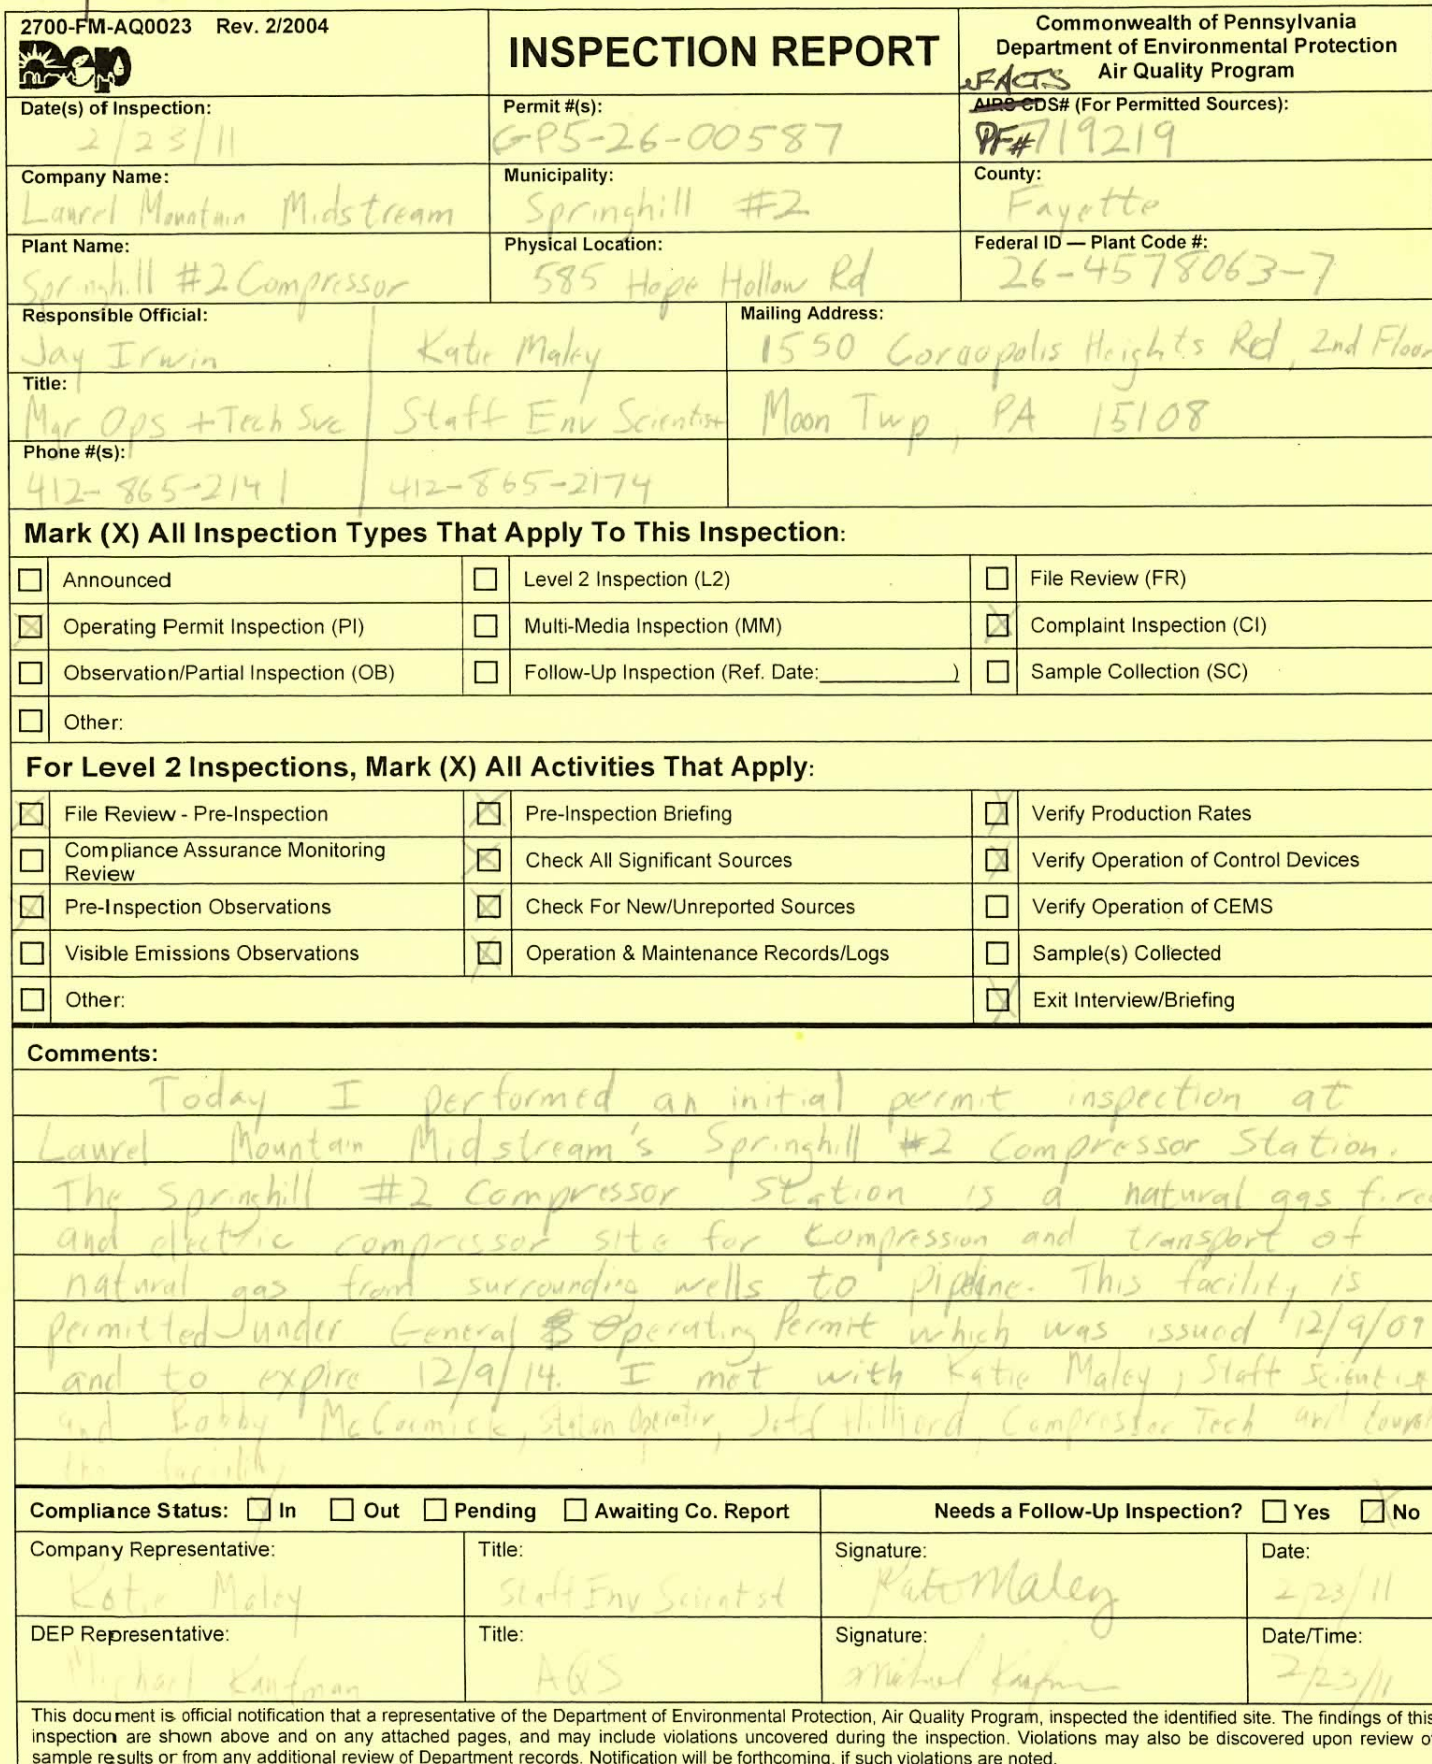 2700-FM-AQ0023 Rev. 2/2004
dep
INSPECTION REPORT
Commonwealth of Pennsylvania
Department of Environmental Protection
Air Quality Program
eFACTS
Date(s) of Inspection:
2/23/11
Permit #(s):
GP5-26-00587
AIRS CDS# (For Permitted Sources):
PF# 719219
Company Name:
Laurel Mountain Midstream
Municipality:
Springhill #2
County:
Fayette
Plant Name:
Springhill #2 Compressor
Physical Location:
585 Hope Hollow Rd
Federal ID — Plant Code #:
26-4578063-7
Responsible Official:
Jay Irwin Katie Maley
Mailing Address:
1550 Coraopolis Heights Rd, 2nd Floor
Title:
Mgr Ops + Tech Svc Staff Env Scientist
Moon Twp, PA 15108
Phone #(s):
412-865-2141 412-865-2174
Mark (X) All Inspection Types That Apply To This Inspection:
Announced
Level 2 Inspection (L2)
File Review (FR)
X Operating Permit Inspection (PI)
Multi-Media Inspection (MM)
X Complaint Inspection (CI)
Observation/Partial Inspection (OB)
Follow-Up Inspection (Ref. Date:__________)
Sample Collection (SC)
Other:
For Level 2 Inspections, Mark (X) All Activities That Apply:
X File Review - Pre-Inspection
X Pre-Inspection Briefing
X Verify Production Rates
Compliance Assurance Monitoring
Review
X Check All Significant Sources
X Verify Operation of Control Devices
X Pre-Inspection Observations
X Check For New/Unreported Sources
Verify Operation of CEMS
Visible Emissions Observations
X Operation & Maintenance Records/Logs
Sample(s) Collected
Other:
X Exit Interview/Briefing
Comments:
Today I performed an initial permit inspection at
Laurel Mountain Midstream's Springhill #2 Compressor Station.
The Springhill #2 Compressor Station is a natural gas fired
and electric compressor site for compression and transport of
natural gas from surrounding wells to pipeline. This facility is
permitted under General Operating Permit which was issued 12/9/09
and to expire 12/9/14. I met with Katie Maley, Staff Scientist
and Bobby McCormick, Station Operator, Jeff Hilliard, Compressor Tech and toured
the facility
Compliance Status: X In Out Pending Awaiting Co. Report
Needs a Follow-Up Inspection? Yes X No
Company Representative:
Katie Maley
Title:
Staff Env Scientist
Signature:
Kate Maley
Date:
2/23/11
DEP Representative:
Michael Kaufman
Title:
AQS
Signature:
Michael Kaufman
Date/Time:
2/23/11
This document is official notification that a representative of the Department of Environmental Protection, Air Quality Program, inspected the identified site. The findings of this
inspection are shown above and on any attached pages, and may include violations uncovered during the inspection. Violations may also be discovered upon review of
sample results or from any additional review of Department records. Notification will be forthcoming, if such violations are noted.